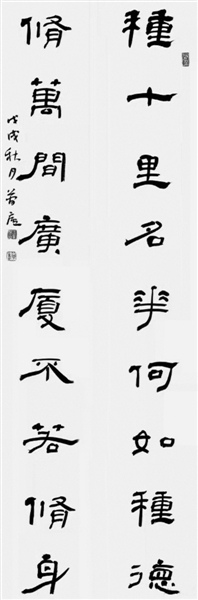 種十里名花何如種德
脩萬間廣厦不若脩身
戊戌秋月